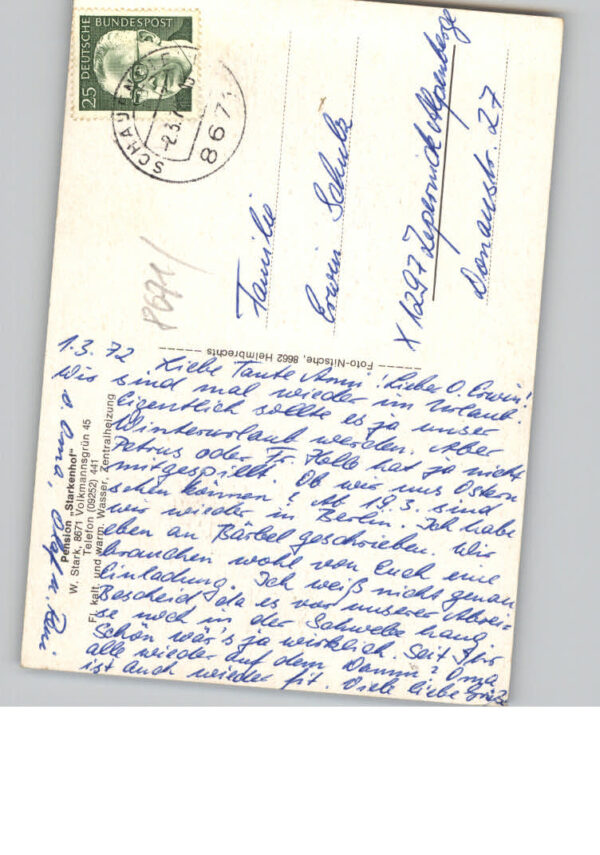 DEUTSCHE BUNDESPOST
25
SCHAUENSTEIN
-2.3.7
8671
8671/
Familie
Erwin Schulz
X 1297 Zepernick-Alpenberge
Donaustr. 27
Foto-Nitsche, 8662 Helmbrechts
Pension „Starkenhof"
W. Stark, 8671 Volkmannsgrün 45
Telefon (09252) 441
Fl. kalt. und warm. Wasser, Zentralheizung
1.3.72
Liebe Tante Anni! Lieber O. Erwin!
Wir sind mal wieder im Urlaub.
Eigentlich sollte es ja unser
Winterurlaub werden. Aber
Petrus oder Fr. Holle hat ja nicht
mitgespielt. Ob wir uns Ostern
sehen können? Ab 19.3. sind
wir wieder in Berlin. Ich habe
eben an Bärbel geschrieben. Wir
brauchen wohl von Euch eine
Einladung. Ich weiß nicht genau
Bescheid da es vor unserer Abrei-
se noch in der Schwebe hing.
Schön wär's ja wirklich. Seit Ihr
alle wieder auf dem Damm? Oma
ist auch wieder fit. Viele liebe Grüße
v. Oma, Olaf u.